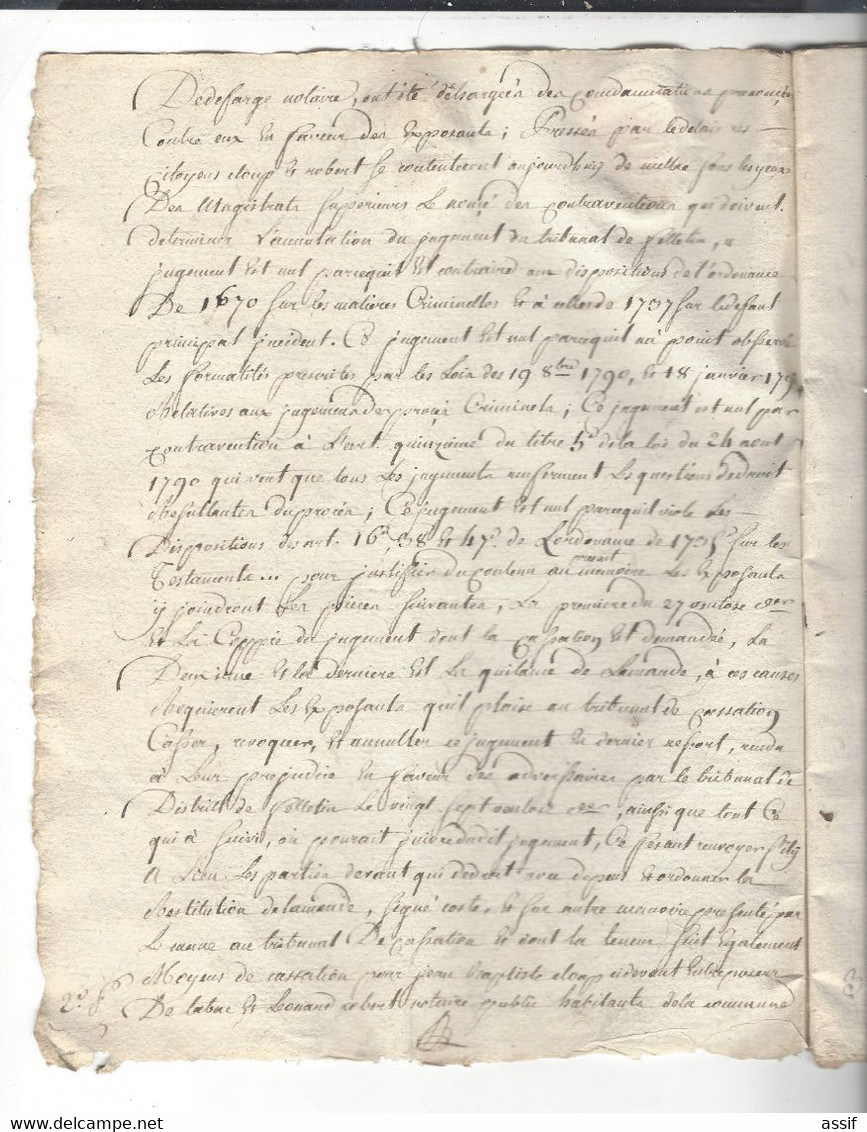 Dedefarge notaire, ont été déchargés des Condamnations prononcées
Contre eux en faveur des Exposants; Pressés par le delais les
Citoyens cloup et robert se contenteront aujourdhuy de mettre sous les yeux
Des Magistrats Superieurs le des contraventions qui doivent
determiner l'annulation du jugement du tribunal de felletin, ce
jugement est nul parcequil est contraire aux dispositions de l'ordonance
De 1670 sur les matieres Criminelles et à celles de 1737 sur le
principal incident. Ce jugement est nul parcequil na point observé
Les formalités prescrites par les Loix des 19 8bre 1790, et 18 janvier 179
Relatives aux jugemens des procès Criminels; Ce jugement est nul par
contravention à L'art. quinzième du titre 5e de la loi du 24 aout
1790 qui veut que tous les jugements renferment les questions de droit
Resultantes du procès; Ce jugement est nul parcequil viole les
Dispositions des art. 16e 38 et 47e de Lordonance de 1735 sur les
Testaments... pour justifier du contenu au present memoire les Exposants
y joindront les pieces suivantes, La premiere du 27 ventose der
est La Coppie du jugement dont la cassation est demandée, La
Deuxieme et la derniere est La quitance de Lamande, à ces causes
Requierent les Exposants quil plaise au tribunal de cassation
Casser, revoquer, et annuller ce jugement en dernier ressort, rendu
à Leur prejudice en faveur des adverssaires par le tribunal de
District de felletin Le vingt sept ventose der, ainssi que tout ce
qui à suivi, ou pourait suivre dudit jugement, Ce fesant renvoyer sily
a Lieu Les parties devant qui de droit avec depens et ordonner la
Restitution de lamande, signé coste, et sur autre memoire presenté par
Le meme au tribunal De cassation et dont la teneur suit egalement
Moyens de cassation pour jean baptiste cloup cidevant entreposeur
De tabac et Leonard robert notaire public habitants de la commune
2e f